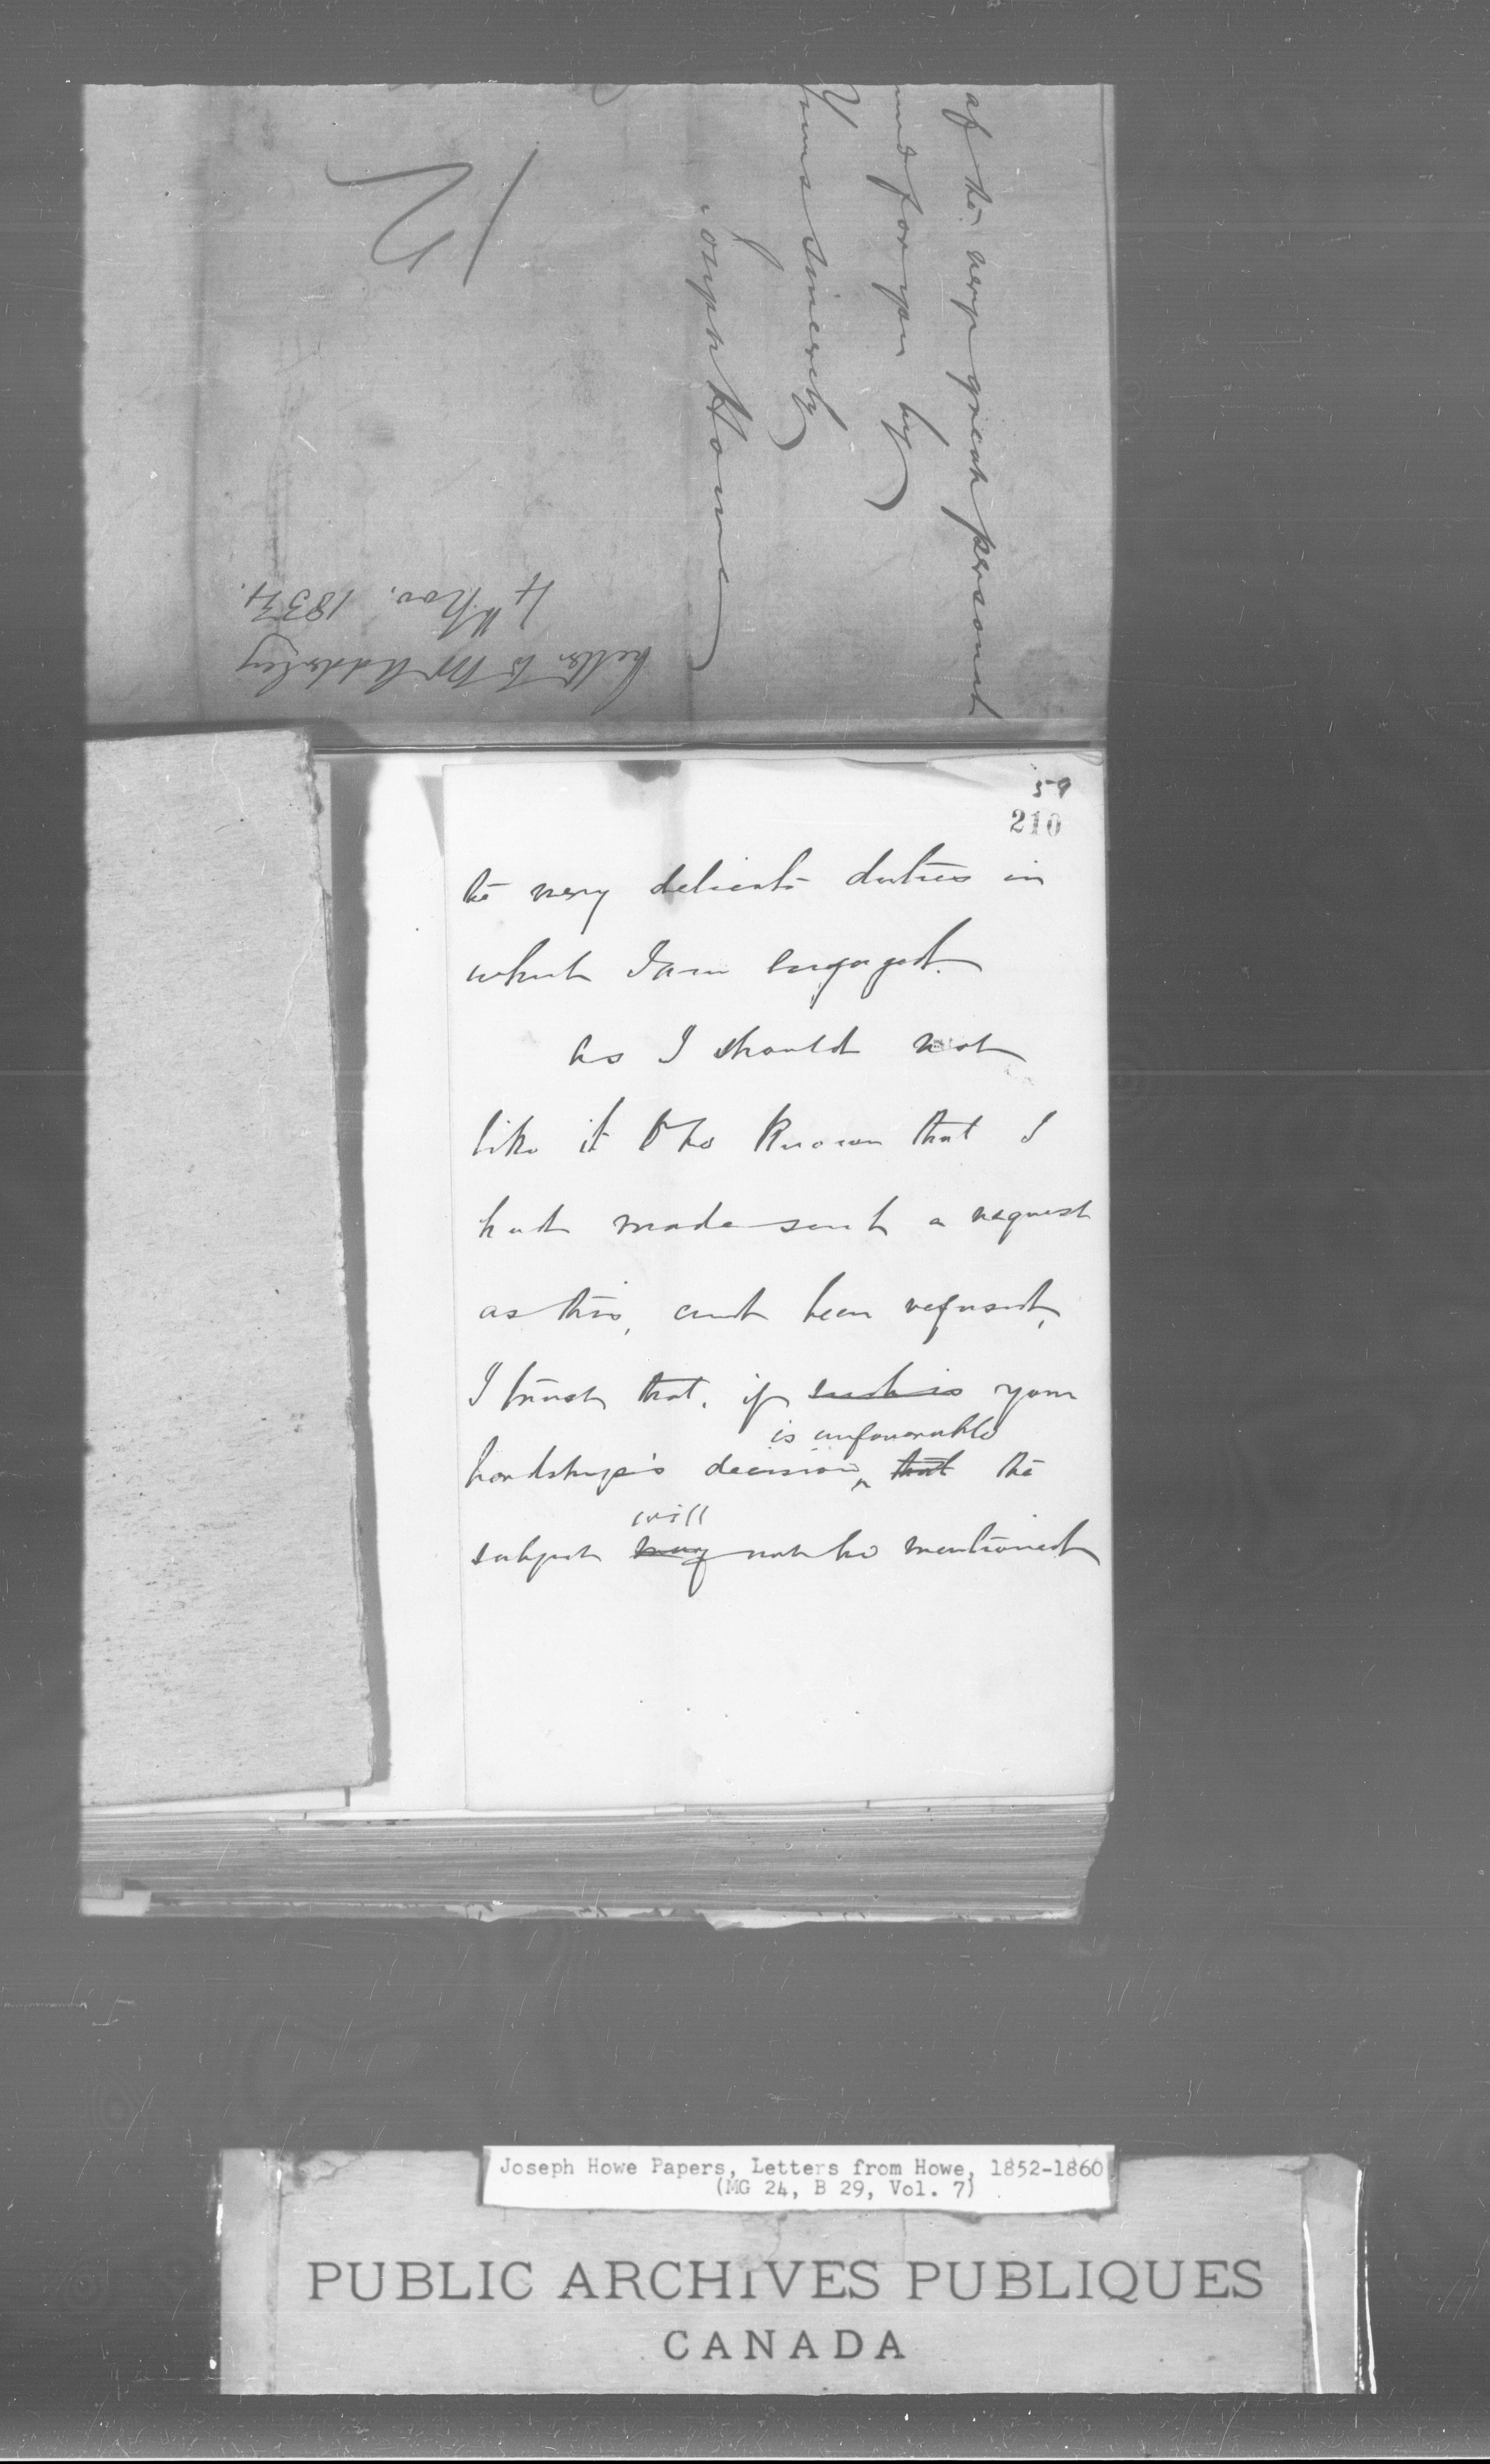 of the very great personal
and for you by
Yours sincerely
Joseph Howe
Letter to Mr Adderley
4th Nov. 1854.
59
210
the very delicate duties in
which I am engaged.
As I should not
like it to be known that I
had made such a request
as this, and been refused,
I trust that, if such is your
is unfavorable
Lordship's decision, that the
will
subject may not be mentioned
Joseph Howe Papers, Letters from Howe, 1852-1860
(MG 24, B 29, Vol. 7)
PUBLIC ARCHIVES PUBLIQUES
CANADA